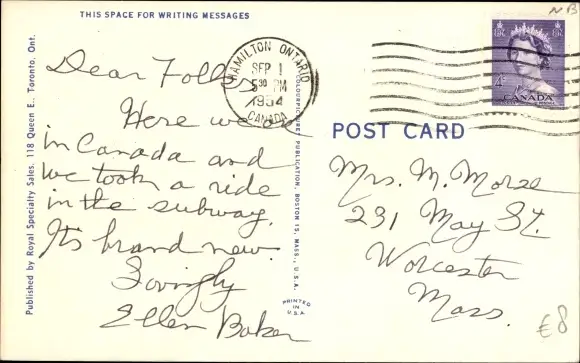 THIS SPACE FOR WRITING MESSAGES
Dear Folks
Here we are
in Canada and
we took a ride
in the subway.
Its brand new.
Lovingly
Ellen Baker
HAMILTON ONTARIO
SEP 1
5 30 PM
1954
CANADA
4¢
CANADA
NB
POST CARD
Mrs. M. Morse
231 May St.
Worcester
Mass.
€8
Published by Royal Specialty Sales, 118 Queen E., Toronto, Ont.
COLOURPICTURE PUBLICATION, BOSTON 15, MASS., U.S.A.
PRINTED
IN
U.S.A.